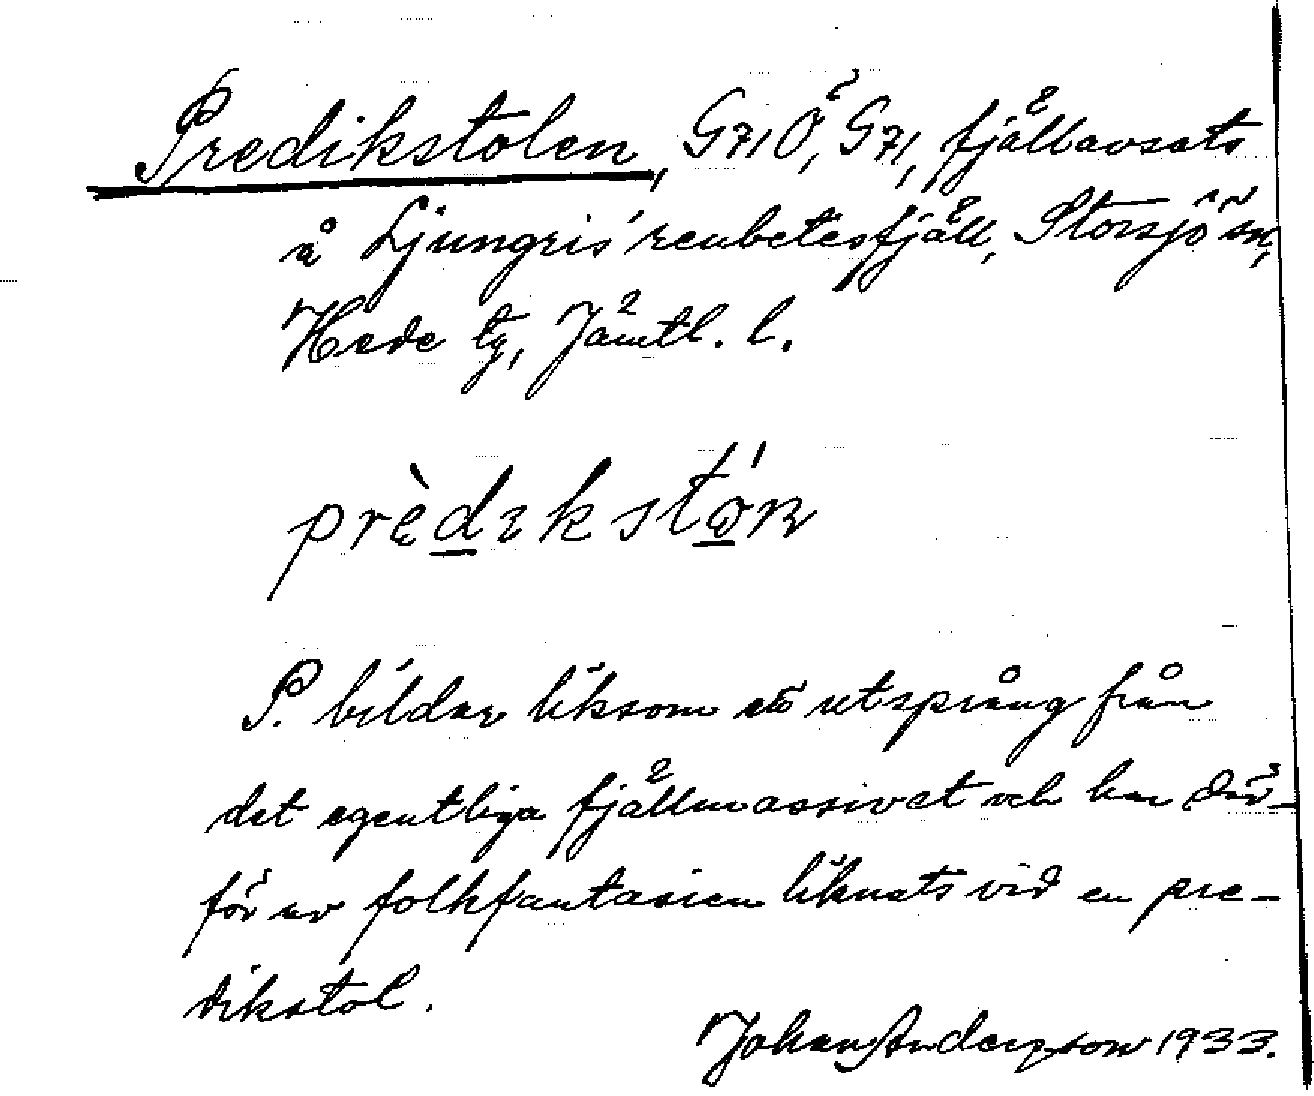 Predikstolen, G71Ö, G71, fjällavsats
å Ljungris' renbetesfjäll, Storsjö sn,
Hede tg, Jämtl. l.
prèdıkstó̱n
P. bildar liksom ett utsprång från
det egentliga fjällmassivet och har där-
för av folkfantasien liknats vid en pre-
dikstol.
Johan Anderzson 1933.